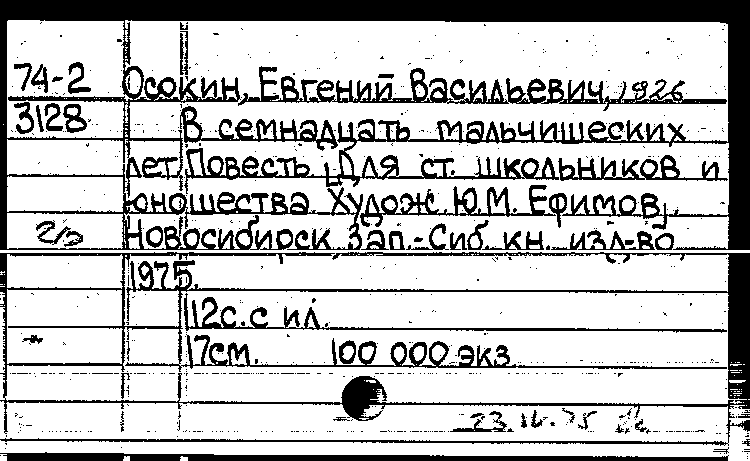 74-2 Осокин, Евгений Васильевич, 1926
3128 В семнадцать мальчишеских
лет. Повесть. [Для ст. школьников и
юношества. Худож. Ю.М. Ефимов].
Новосибирск, Зап.-Сиб. кн. изд-во,
1975.
112с. с ил.
17см. 100 000 экз.